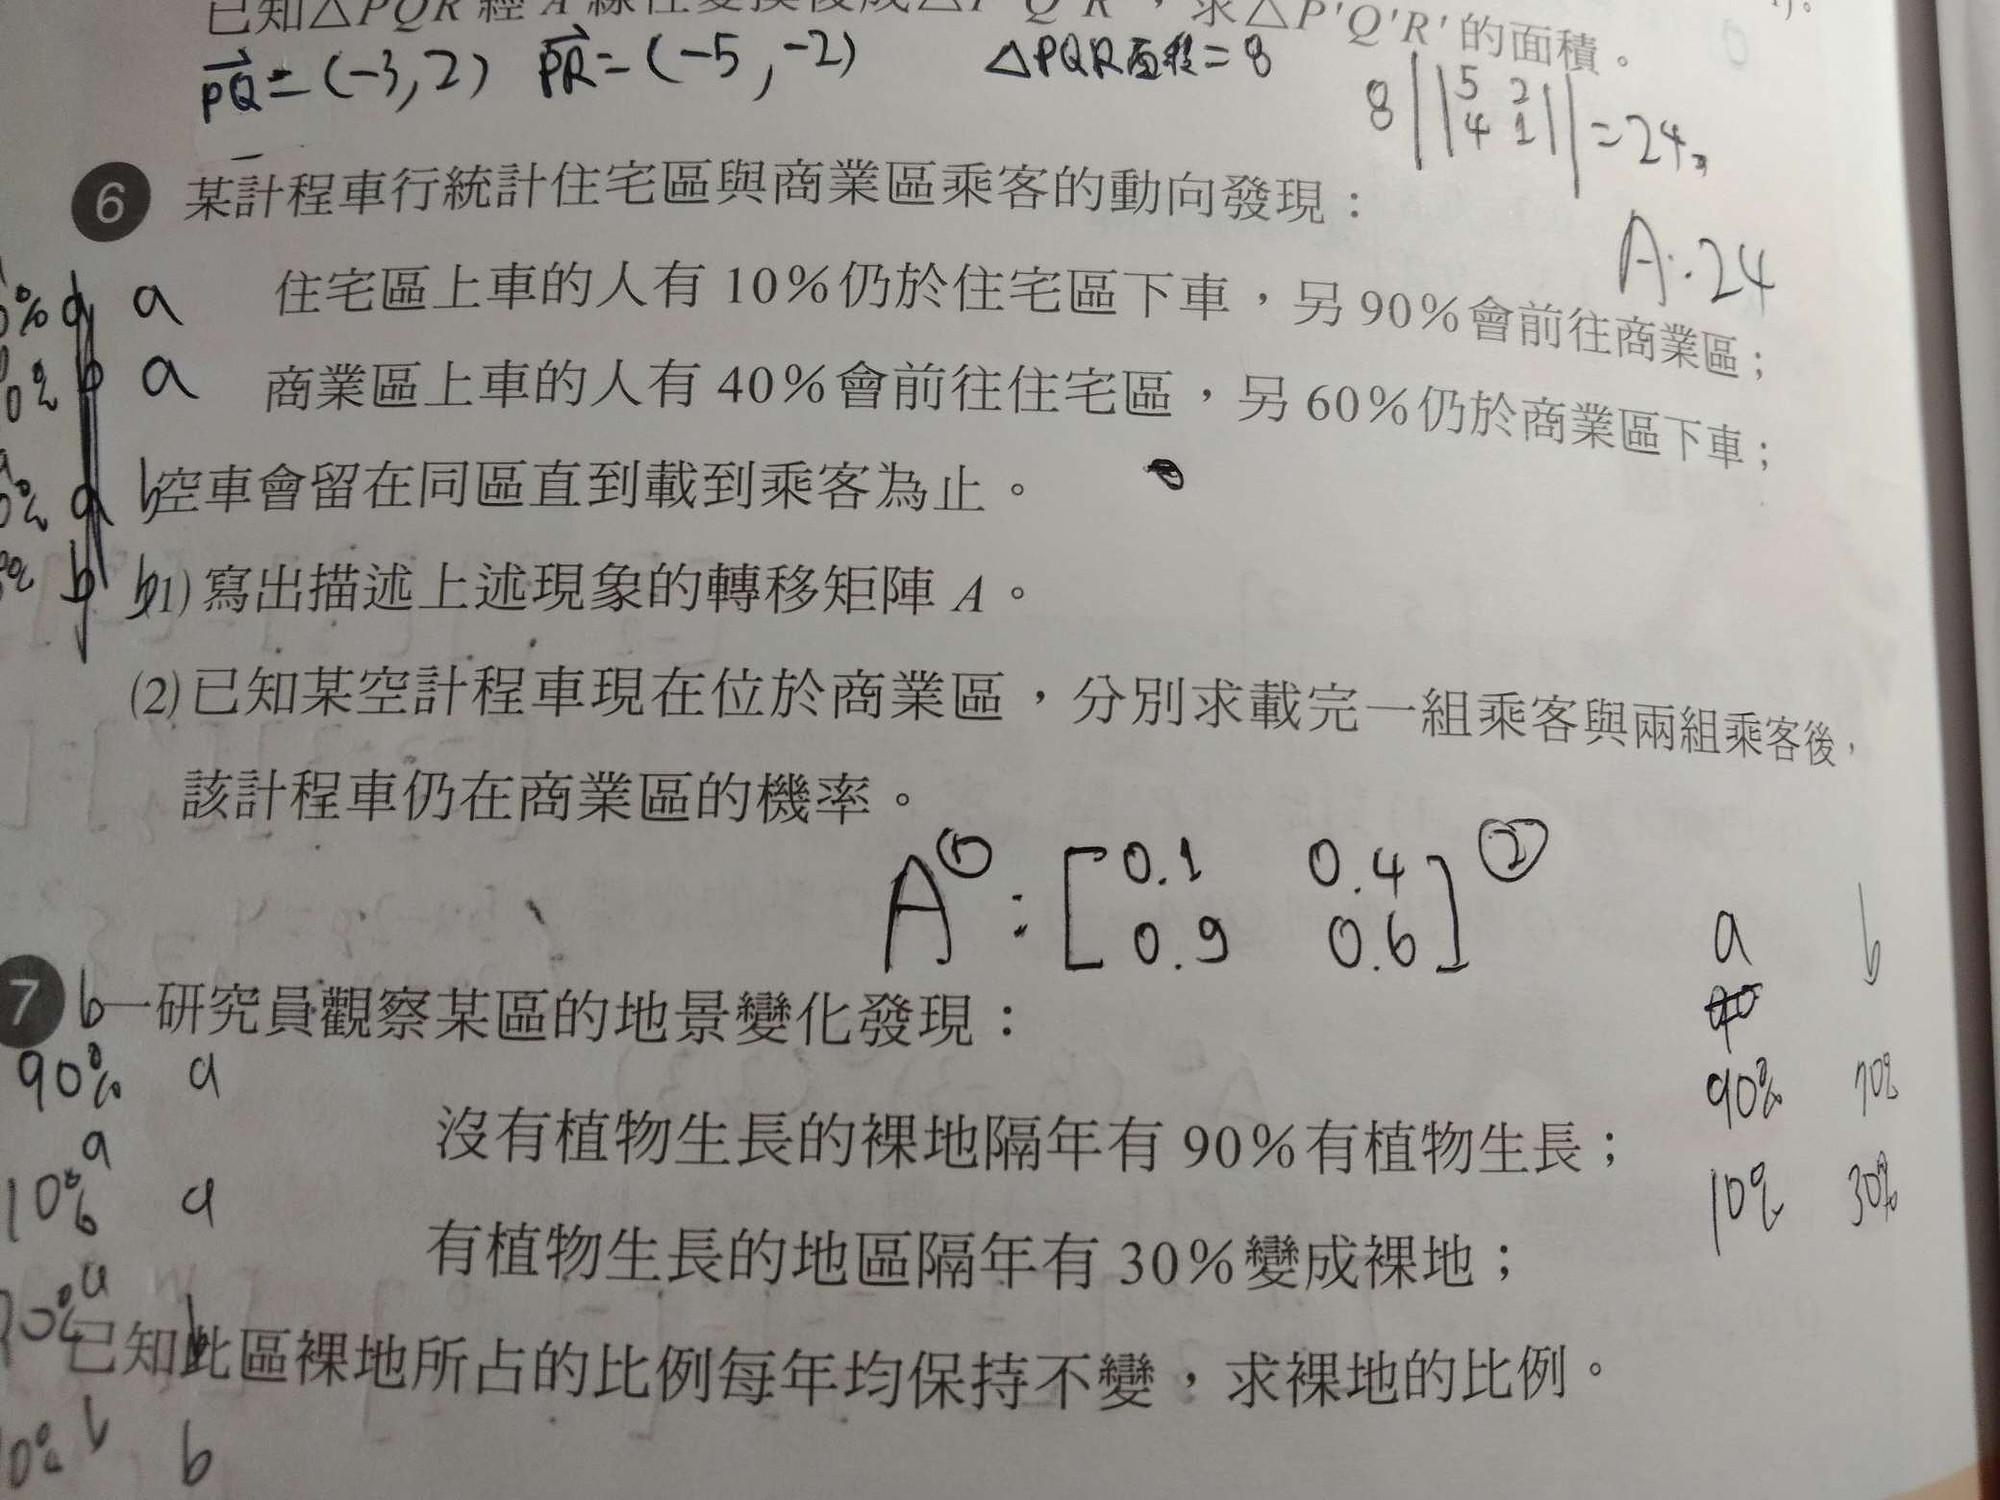 已知△PQR 經 A 線性變換後成△P'Q'R'，求△P'Q'R'的面積。
PQ=(-3,2) PR=(-5,-2) △PQR面積=8
8||5 2
4 1||=24
A:24
6 某計程車行統計住宅區與商業區乘客的動向發現：
a 住宅區上車的人有10%仍於住宅區下車，另90%會前往商業區；
b a 商業區上車的人有40%會前往住宅區，另60%仍於商業區下車；
a b 空車會留在同區直到載到乘客為止。
b b (1)寫出描述上述現象的轉移矩陣 A。
(2)已知某空計程車現在位於商業區，分別求載完一組乘客與兩組乘客後，
該計程車仍在商業區的機率。
A ① : [0.1 0.4 ②
0.9 0.6]
a b
7 b 一研究員觀察某區的地景變化發現：
90% a
90% 70%
沒有植物生長的裸地隔年有90%有植物生長；
a
10% a
10% 30%
有植物生長的地區隔年有30%變成裸地；
a
已知此區裸地所占的比例每年均保持不變，求裸地的比例。
b b